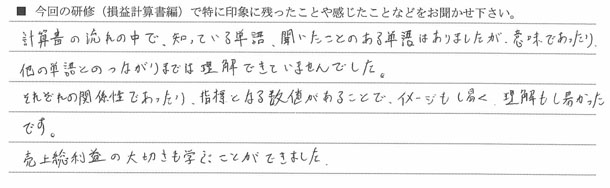 ■ 今回の研修（損益計算書編）で特に印象に残ったことや感じたことなどをお聞かせ下さい。
計算書の流れの中で、知っている単語、聞いたことのある単語はありましたが、意味であったり、
他の単語とのつながりまでは理解できていませんでした。
それぞれの関係性であったり、指標となる数値があることで、イメージもし易く、理解もし易かった
です。
売上総利益の大切さも学ぶことができました。